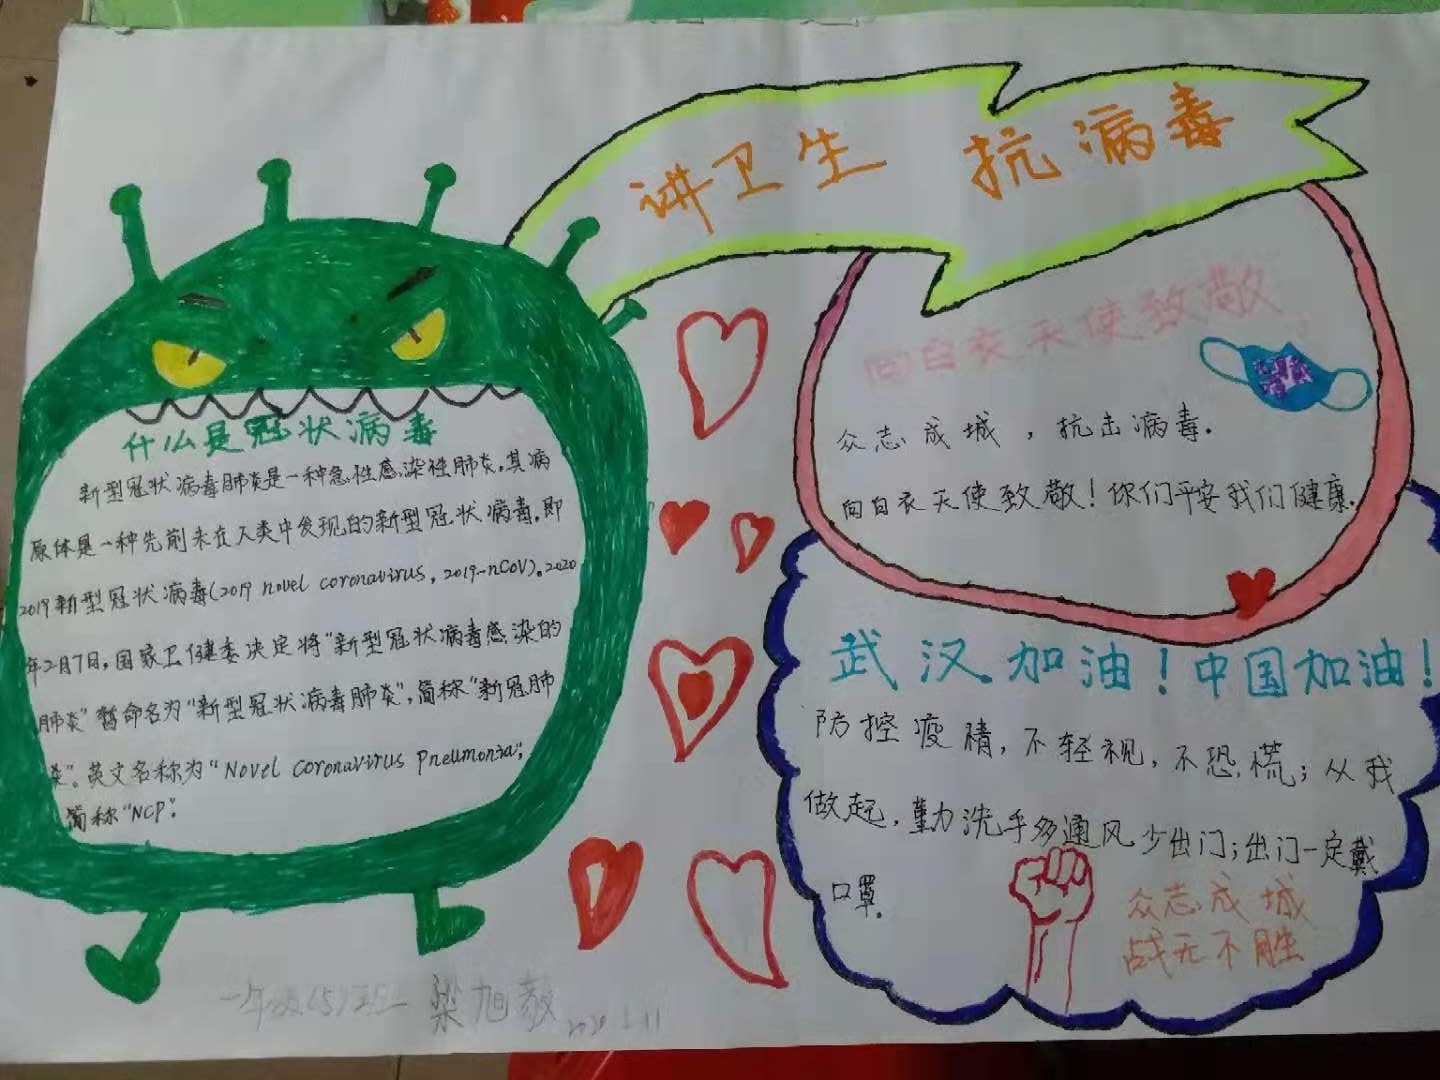 讲卫生 抗病毒
什么是冠状病毒
新型冠状病毒肺炎是一种急性感染性肺炎,其病
原体是一种先前未在人类中发现的新型冠状病毒,即
2019新型冠状病毒(2019 novel coronavirus, 2019-nCoV)。2020
年2月7日,国家卫健委决定将"新型冠状病毒感染的
肺炎"暂命名为"新型冠状病毒肺炎",简称"新冠肺
炎"。英文名称为"Novel coronavirus pneumonia",
简称"NCP".
向白衣天使致敬
众志成城,抗击病毒.
向白衣天使致敬!你们平安我们健康.
武汉加油!中国加油!
防控疫情,不轻视,不恐慌;从我
做起,勤洗手多通风少出门;出门一定戴
口罩.
众志成城
战无不胜
一年级(5)班 梁旭毅 2020.2.11